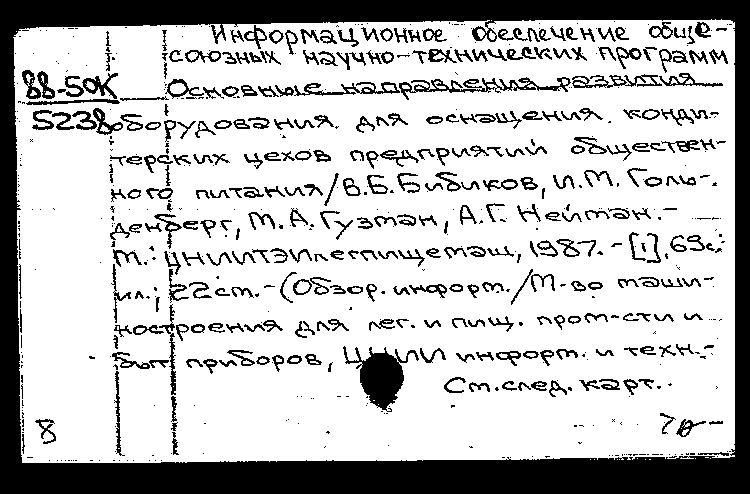 Информационное обеспечение обще-
союзных научно-технических программ
88-50К
Основные направления развития
5238
оборудования для оснащения конди-
терских цехов предприятий обществен-
ного питания/В.Б.Бибиков, И.М. Голь-
денберг, М.А. Гузман, А.Г. Нейман.-
М.: ЦНИИТЭИлегпищемаш, 1987. - [1], 69с.:
ил.; 22 см. - (Обзор. информ./М-во маши-
ностроения для лег. и пищ. пром-сти и
быт приборов, ЦНИИ информ. и техн.-
См. след. карт..
8